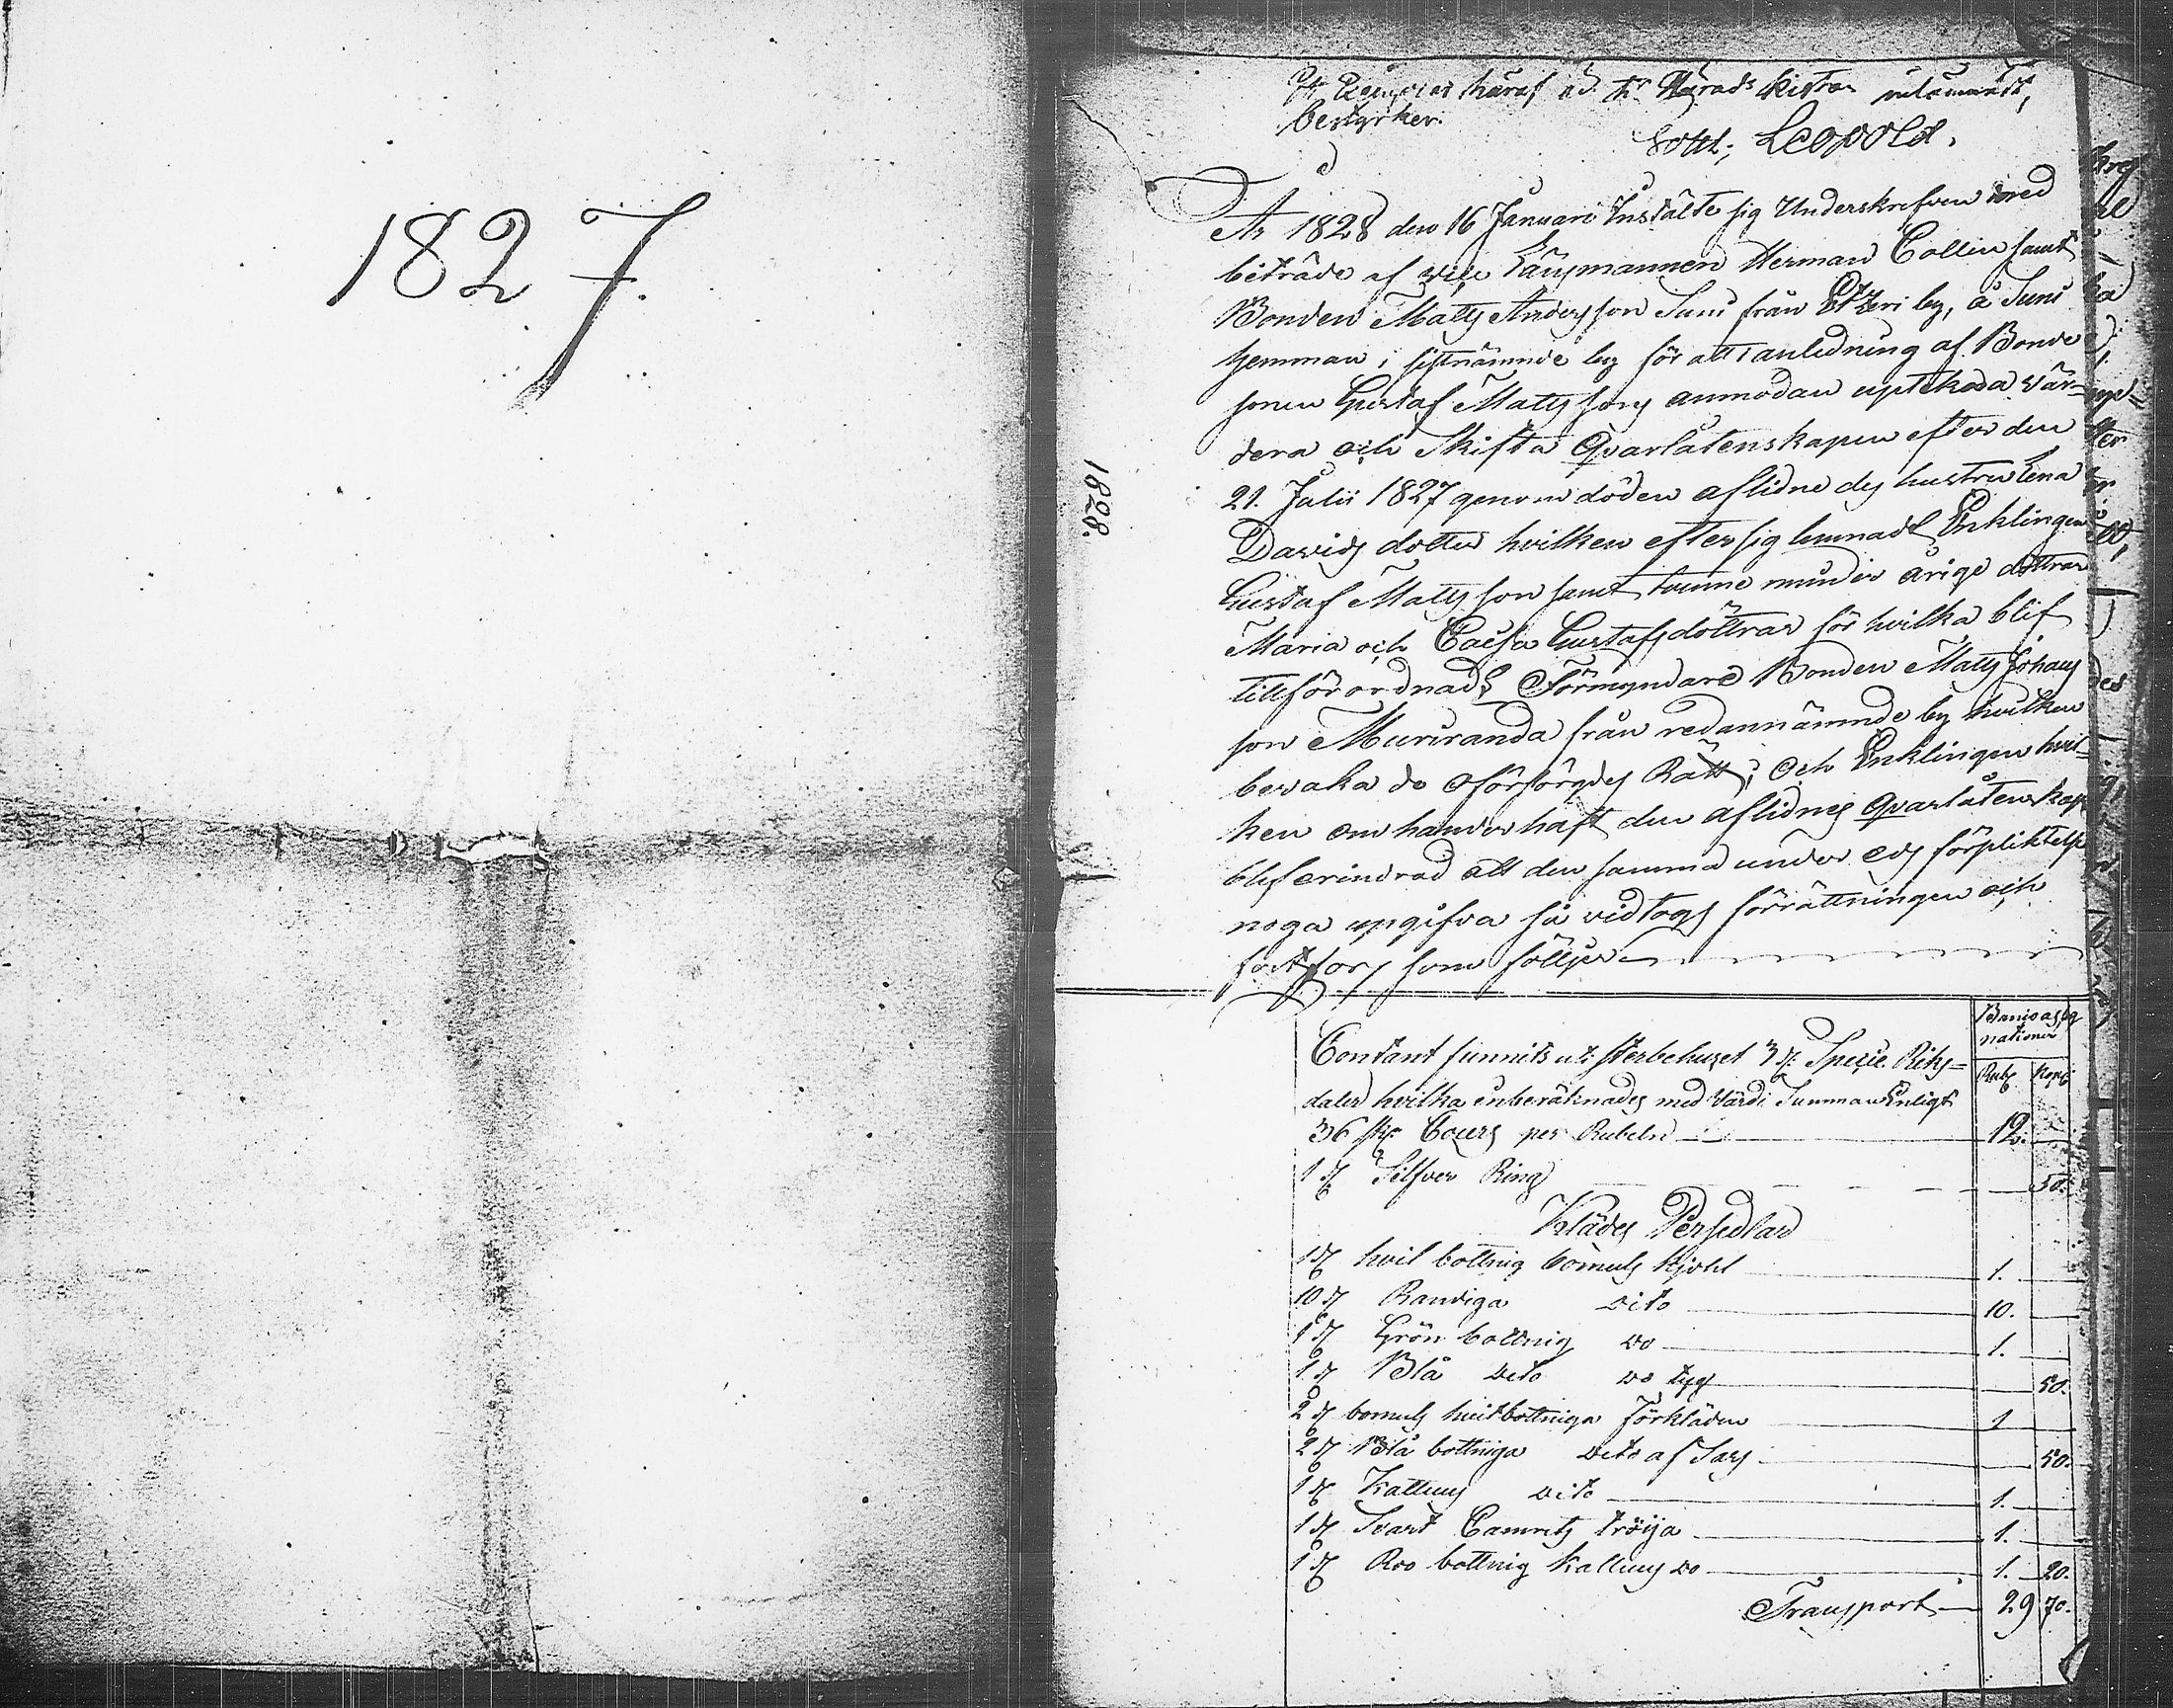 1827.
Ett Exemplar häraf ad. Hr Härads kistan inlämnadt,
bestyrker.
Gottl; Leopold.
1828.
År 1828 den 16 Januarii Instälte sig Underskrefven med
biträde af vice Länsmannen Herman Collin samt
Bonden Matts Andersson Suni från by, å Suni
hemman i sistnämnde by för att i anledning af Bonde
sonen Gustaf Mattssons anmodan uptekna vär-
dera och Skifta Qvarlåtenskapen efter den
21. Julii 1827 genom döden aflidne des hustru Lena
Davids dotter hvilken efter sig lemnadt Enklingen
Gustaf Mattsson samt tvenne minder årige döttrar
Maria och Caisa Gustafsdöttrar för hvilka blif
tillförordnadt Förmyndare Bonden Matts Johans
son Muriranda från redannämnde by hvilken
bevaka de oförsörgdes Rätt; Och Enklingen hvil-
ken om handerhaft den aflidnes Qvarlåtenskap
blef erindrad att den samma under eds förpliktelse
noga upgifva så vidtogs förrättningen och
fortfors som föllger
Banco assig
nationer
Rub. Kopk
Contant funnits uti sterbehuset 3 st. Specie Riks-
daler hvilka inberäknades med värdi Summan Enligt
36 sk. Cours per Rubeln 12. —
1 st Silfver Ring — 50.
Klädes Persedlar
1 st hvit bottnig bomuls Kjohl 1. —
10 st Randiga dito 10. —
1 st Grön bottnig do 1. —
1 st Blå dito do tyg — 50.
2 st bomuls hvitbottniga Förkläden 1 —
2 st Blå bottniga dito af Sars — 50.
1 st Kattuns dito 1. —
1 st Svart Camrits tröija 1. —
1 st Röd bottnig kattuns do 1. 20.
Transport 29 70.